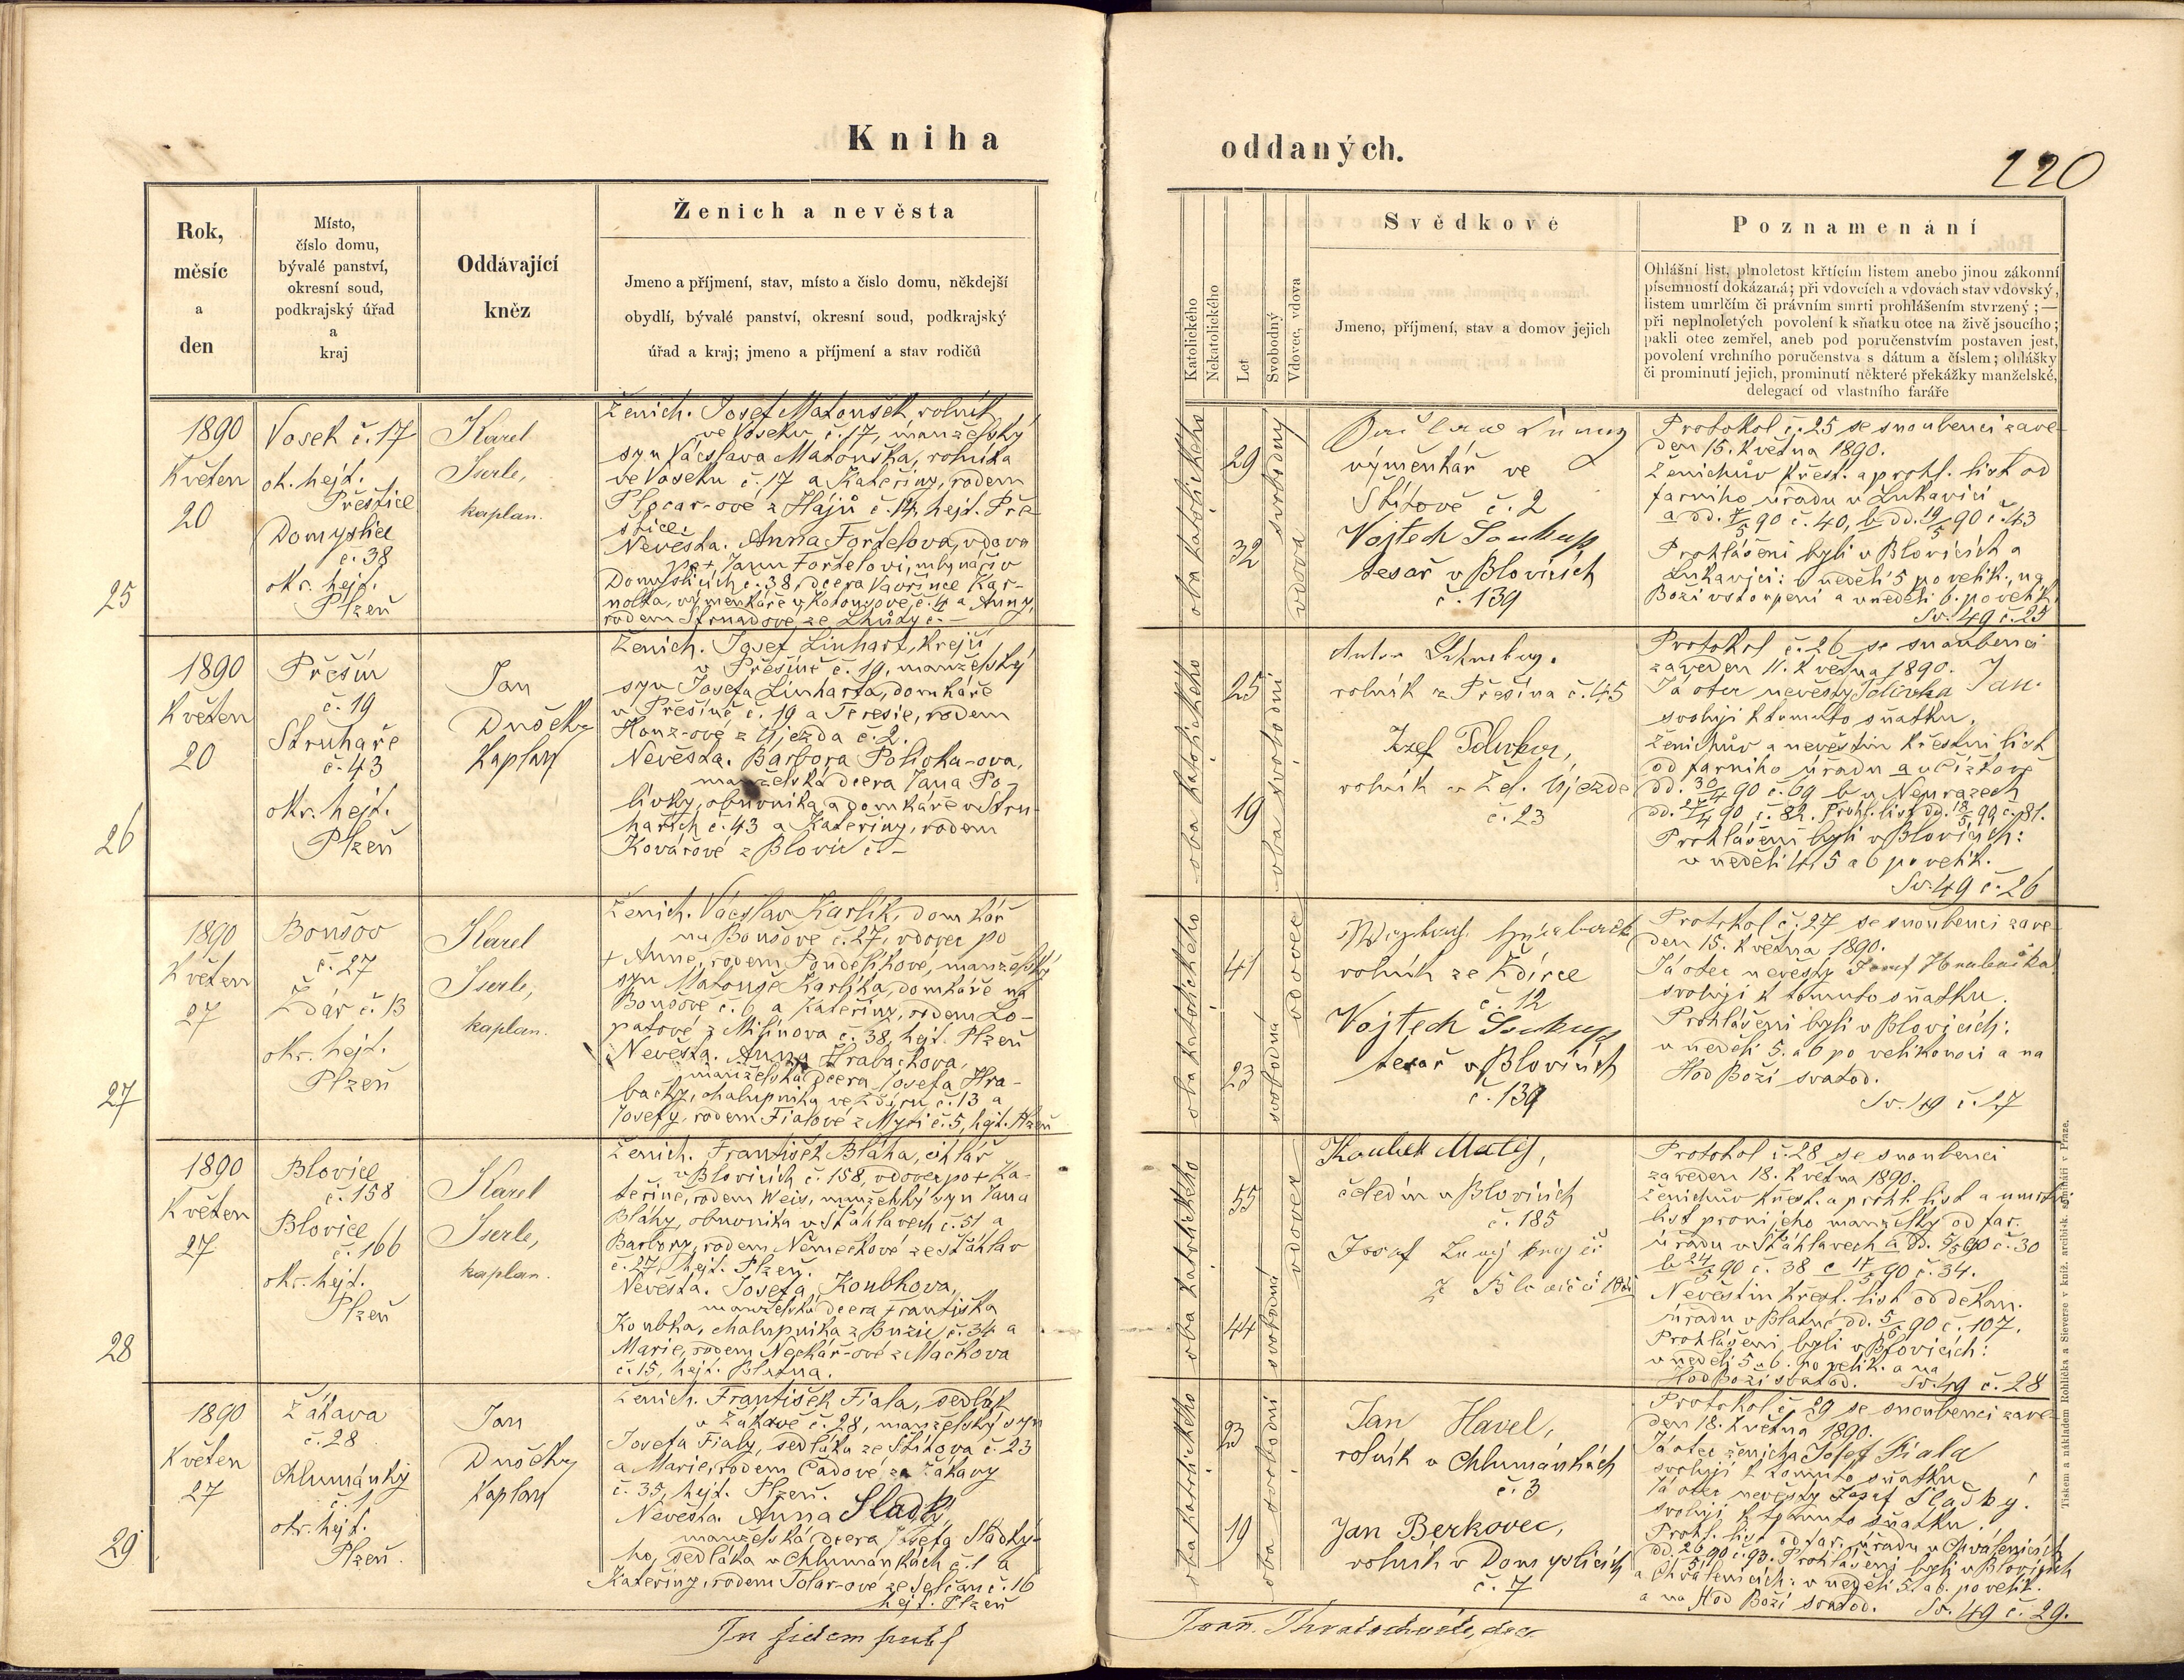 Kniha
oddaných.
220
Rok,
měsíc
a
den
Místo,
číslo domu,
bývalé panství,
okresní soud,
podkrajský úřad
a
kraj
Oddávající
kněz
Ženich a nevěsta
Jmeno a příjmení, stav, místo a číslo domu, někdejší
obydlí, bývalé panství, okresní soud, podkrajský
úřad a kraj; jmeno a příjmení a stav rodičů
Katolického
Nekatolického
Let
Svobodný
Vdovec, vdova
Svědkové
Jmeno, příjmení, stav a domov jejich
Poznamenání
Ohlášní list, plnoletost křtícím listem anebo jinou zákonní
písemností dokázaná; při vdovcích a vdovách stav vdovský,
listem umrlčím či právním smrti prohlášením stvrzený; —
při neplnoletých povolení k sňatku otce na živě jsoucího;
pakli otec zemřel, aneb pod poručenstvím postaven jest,
povolení vrchního poručenstva s dátum a číslem; ohlášky
či prominutí jejich, prominutí některé překážky manželské,
delegací od vlastního faráře
25
1890
Květen
20
Vosek č. 17
ok. hejt.
Přeštice
Domyslice
č. 38
okr. hejt.
Plzeň
Karel
Iserle,
kaplan.
Ženich. Josef Matoušek, rolník
ve Voseku č. 17, manželský
syn Václava Matouška, rolníka
ve Voseku č. 17 a Kateřiny, rodem
Plocar-ové z Hájů č. 14, hejt. Pře
štice.
Nevěsta. Anna Fořtelova, vdova
po +, Janu Fořtelovi, mlynáři v
Domyslicích č. 38, dcera Vavřince Kar-
nolta, výmenkáře v č. 4 a Anny,
rodem Strnadové, ze Lhůty č. –
oba katolického
29
32
svobodný
vdova
výměnkář ve
Štítově č. 2
Vojtěch Soukup
tesař v Blovicích
č. 139
Protokol č. 25 se snoubenci zave-
den 15. května 1890.
Ženichův křest. a prohl. list od
farního úřadu v Lukavici
a dd. 7/5 90 č. 40, b dd. 19/5 90 č. 43
Prohlášeni byli v Blovicích a
Lukavici: v neděli 5 po velik., na
Boží vstoupení a v neděli 6. po velik.
Sv. 49 č. 25
26
1890
Květen
20
Přešín
č. 19
Struhaře
č. 43
okr. hejt.
Plzeň
Jan
Dušek
Kaplan
Ženich. Josef Linhart, krejčí
v Přešíně č. 19, manželský
syn Josefa Linharta, domkáře
v Přešíně č. 19 a Teresie, rodem
Honz-ové z Újezda č. 2.
Nevěsta. Barbora Polívka-ova,
manželská dcera Jana Po-
lívky, obuvníka a domkáře v Stru-
hařích č. 43 a Kateřiny, rodem
Kovářové z Blovic č –
oba katolického
25
19
oba svobodni
rolník z Přešína č. 45
Jozef Polívka,
rolník v Žel. Újezdě
č. 23
Protokol č. 26 se snoubenci
zaveden 11. května 1890.
Já otec nevěsty Polivka Jan
svoluji k tomuto sňatku.
Ženichův a nevěstin křestní list
od farního úřadu a v Čížkově
dd. 30/4 90 č. 69 b v Neurazech
dd. 27/4 90, č. 82. Prohl. list dd. 18/5 90 č. 81.
Prohlášeni byli v Blovicích:
v neděli 4, 5 a 6 po velik.
Sv. 49 č. 26
27
1890
Květen
27
Boušov
č. 27
Ždár č. 13
okr. hejt.
Plzeň
Karel
Iserle,
kaplan.
Ženich. Václav Karlík, domkář
na Boušově č. 27, vdovec po
+ Anně, rodem Poudelikové, manželský
syn Matouše Karlíka, domkáře na
Boušově č. 6 a Kateřiny, rodem Lo-
patové z Milínova č. 38, hejt. Plzeň
Nevěsta. Anna Hrabačkova,
manželská dcera Josefa Hra-
bačky, chalupníka ve Ždíru č. 13 a
Josefy, rodem Fialové z Mýti č. 5, hejt. Plzeň
oba katolického
41
23
vdovec
svobodná
rolník ze Ždírce
č. 12
Vojtěch Soukup
tesař v Blovicích
č. 139
Protokol č. 27 se snoubenci zave-
den 15. května 1890.
Já otec nevěsty Josef Hrabačka
svoluji k tomuto sňatku.
Prohlášeni byli v Blovicích:
v neděli 5. a 6 po velikonoci a na
Hod Boží svatod.
Sv. 49 č. 27
28
1890
Květen
27
Blovice
č. 158
Blovice
č. 166
okr. hejt.
Plzeň
Karel
Iserle,
kaplan.
Ženich. František Bláha, cihlář
v Blovicích č. 158, vdovec po + Ka-
teřině, rodem Weis, manželský syn Jana
Bláhy, obuvníka v Stáhlavech č. 51 a
Barbory, rodem Němečkové ze Stáhlav
č. 27, hejt. Plzeň.
Nevěsta. Josefa, Koubkova,
manželská dcera Františka
Koubka, chalupníka z Buzic, č. 34 a
Marie, rodem Neckář-ové z Mačkova
č. 15, hejt. Blatna.
oba katolického
55
44
vdovec
svobodná
Koubek Matěj,
čeledín v Blovicích
č. 185
Josef
Protokol č. 28 se snoubenci
zaveden 18. května 1890.
Ženichův křest. a prohl. list a umrtní
list první jeho manželky od far.
úřadu v Stáhlavech a dd. 5/5 90 č. 30
b 24/5 90 č. 38 c 17/5 90 č. 34.
Nevěstin křest. list od děkan.
úřadu v Blatné dd. 5/5 90 č. 107.
Prohlášeni byli v Blovicích:
v neděli 5 a 6. po velik. a na
Hod Boží svatod. Sv. 49 č. 28
29
1890
Květen
27
Žákava
č. 28
Chlumánky
č. 1
okr. hejt.
Plzeň.
Jan
Dušek
Kaplan
Ženich. František Fiala, sedlák
v Žákavě č. 28, manželský syn
Josefa Fialy, sedláka ze Štítova č. 23
a Marie, rodem Čadové, ze Žákavy
č. 35, hejt. Plzeň.
Nevěsta. Anna Sladký,
manželská dcera Josefa Sladký-
ho, sedláka v Chlumánkách č. 1 a
Kateřiny, rodem Tolar-ové ze Selčan č. 16
hejt. Plzeň
oba katolického
23
19
oba svobodni
Jan Havel,
rolník v Chlumánkách
č. 3
Jan Berkovec,
rolník v Domyslicích
č. 7
Protokol č. 29 se snoubenci zave-
den 18. května 1890.
Já otec ženicha Josef Fiala
svoluji k tomuto sňatku.
Já otec nevěsty Josef Sladký.
svoluji k tomuto sňatku.
Prohl. list od far. úřadu v Chválenicích
dd. 26/5 90 č. 93. Prohlášeni byli v Blovicích
a Chválenicích: v neděli 5. a 6. po velik.
a na Hod Boží svatod. Sv. 49 č. 29.
In fidem
Tiskem a nákladem Rohlíčka a Sieverse v kníž. arcibisk. semináři v Praze.